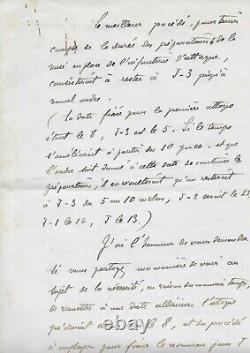 Le meilleur procédé, pour tenir
compte de la durée des préparatifs & de la
mise en place de l'infanterie d'attaque,
consisterait à rester à J-3 jusqu'à
nouvel ordre.
( La date fixée pour la première attaque
étant le 8, J-3 est le 5. Si le temps
s'améliorait à partir du 10 juin, et que
l'ordre soit donné à cette date de continuer la
préparation, il en résulterait qu'on resterait
à J-3 du 5 au 10 inclus, J-2 serait le 11,
J-1 le 12, J le 13. )
J'ai l'honneur de vous demander
si vous partagez ma manière de voir au
sujet de la nécessité, en raison du mauvais temps,
de remettre à une date ultérieure l'attaque
qui devait le 8, et du procédé
à employer pour fixer le nouveau jour J.